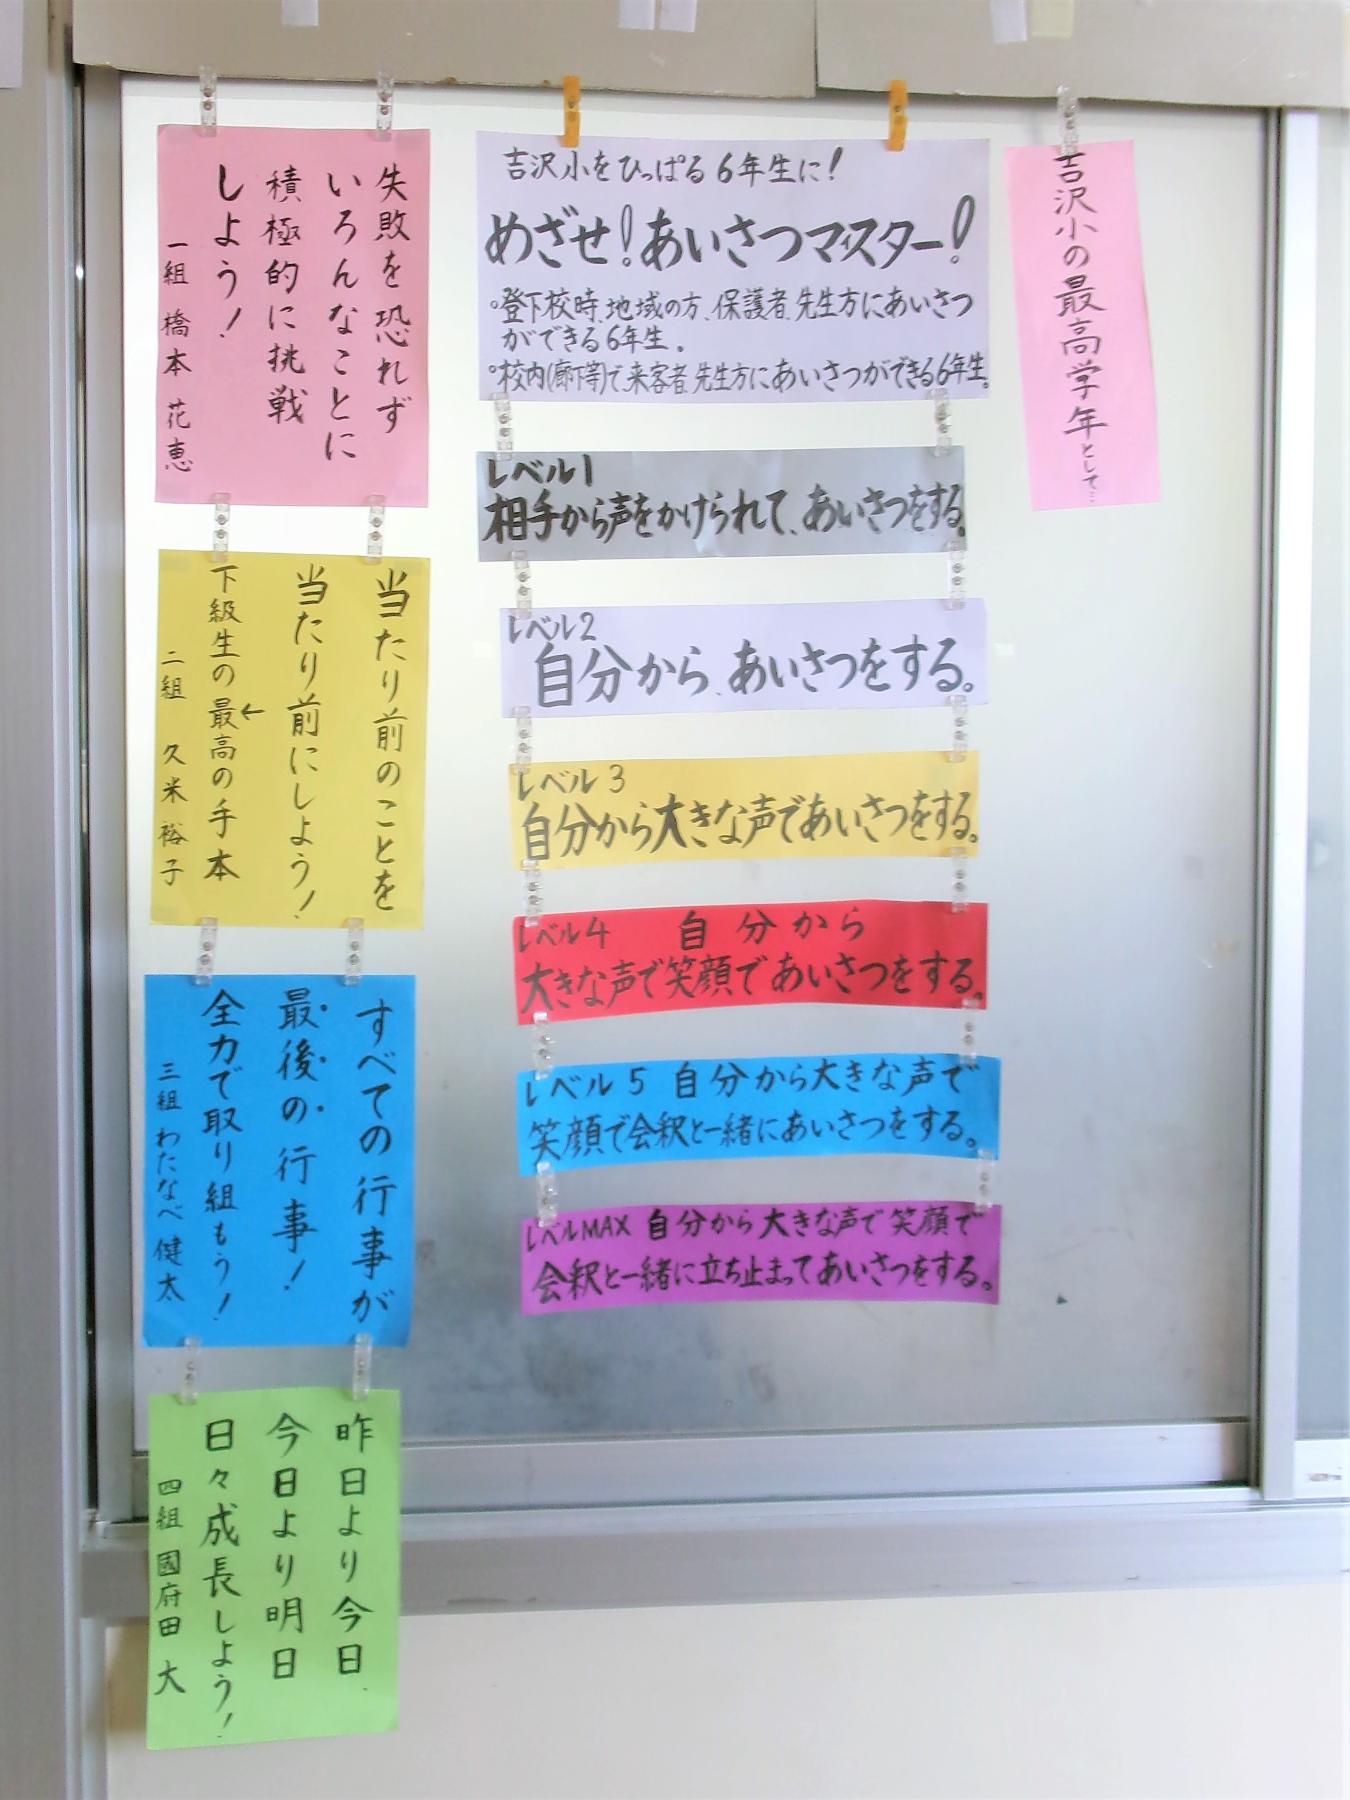 吉沢小の最高学年として…
吉沢小をひっぱる6年生に!
めざせ!あいさつマイスター!
°登下校時、地域の方、保護者、先生方にあいさつ
ができる6年生。
°校内(廊下等)で、来客者、先生方にあいさつができる6年生。
レベル1
相手から声をかけられて、あいさつをする。
レベル2
自分から、あいさつをする。
レベル3
自分から大きな声であいさつをする。
レベル4 自分から
大きな声で笑顔であいさつをする。
レベル5 自分から大きな声で
笑顔で会釈と一緒にあいさつをする。
レベルMAX 自分から大きな声で笑顔で
会釈と一緒に立ち止まってあいさつをする。
失敗を恐れず
いろんなことに
積極的に挑戦
しよう!
一組 橋本 花恵
当たり前のことを
当たり前にしよう!
←
下級生の最高の手本
二組 久米 裕子
すべての行事が
最後の行事!
全力で取り組もう!
三組 わたなべ 健太
昨日より今日、
今日より明日
日々成長しよう!
四組 國府田 大